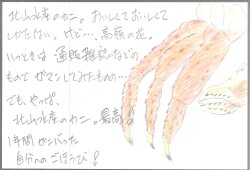 北山水産のカニ。おいしくておいしくて
しかたない。けど…高嶺の花。
いっときは通販雑誌などの
ものでガマンしてみたものの…
でも、やっぱ、
北山水産のカニ。最高!!
1年間がんばった
自分へのごほうび!